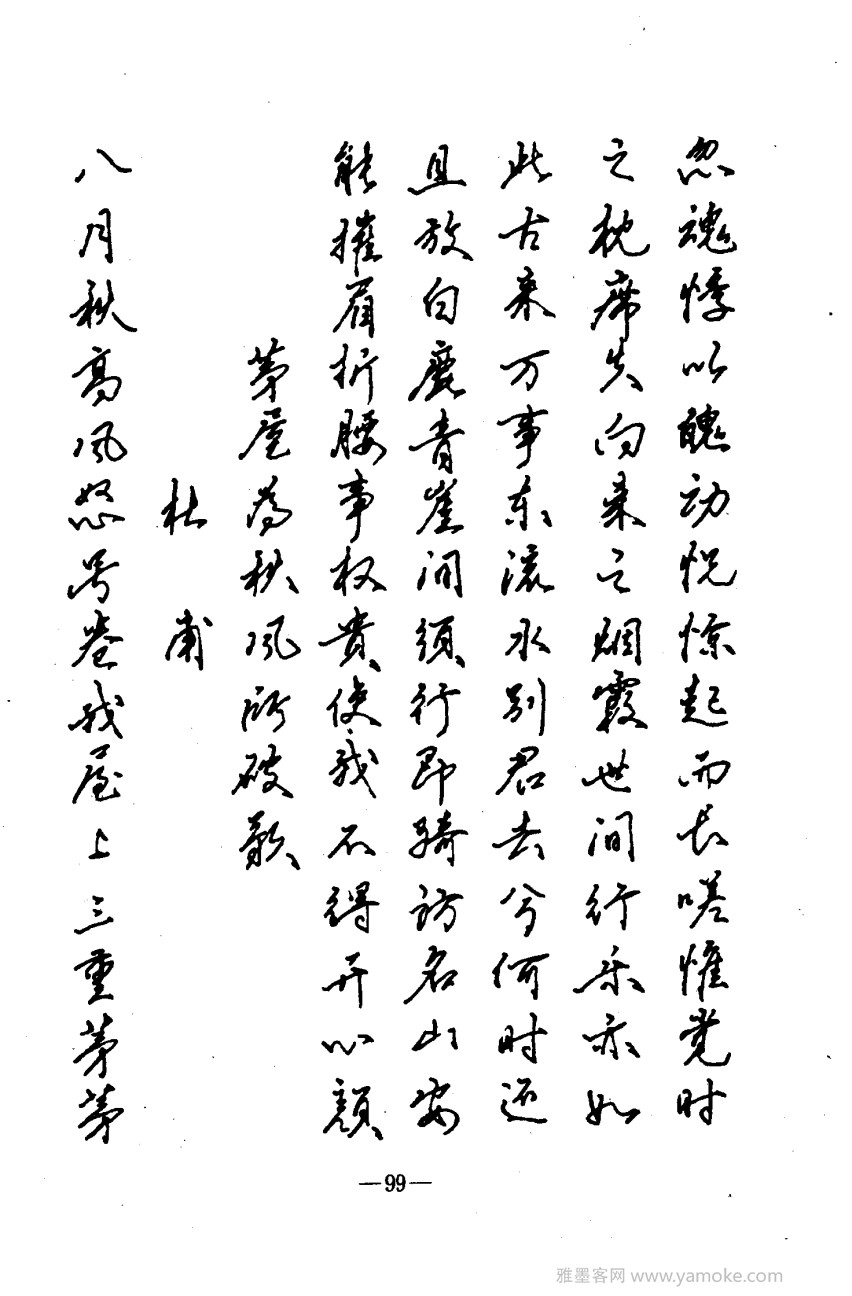 忽魂悸以魄动怳惊起而长嗟惟觉时
之枕席失向来之烟霞世间行乐亦如
此古来万事东流水别君去兮何时还
且放白鹿青崖间须行即骑访名山安
能摧眉折腰事权贵使我不得开心颜
茅屋为秋风所破歌
杜甫
八月秋高风怒号卷我屋上三重茅茅
—99—
雅墨客网 www.yamoke.com